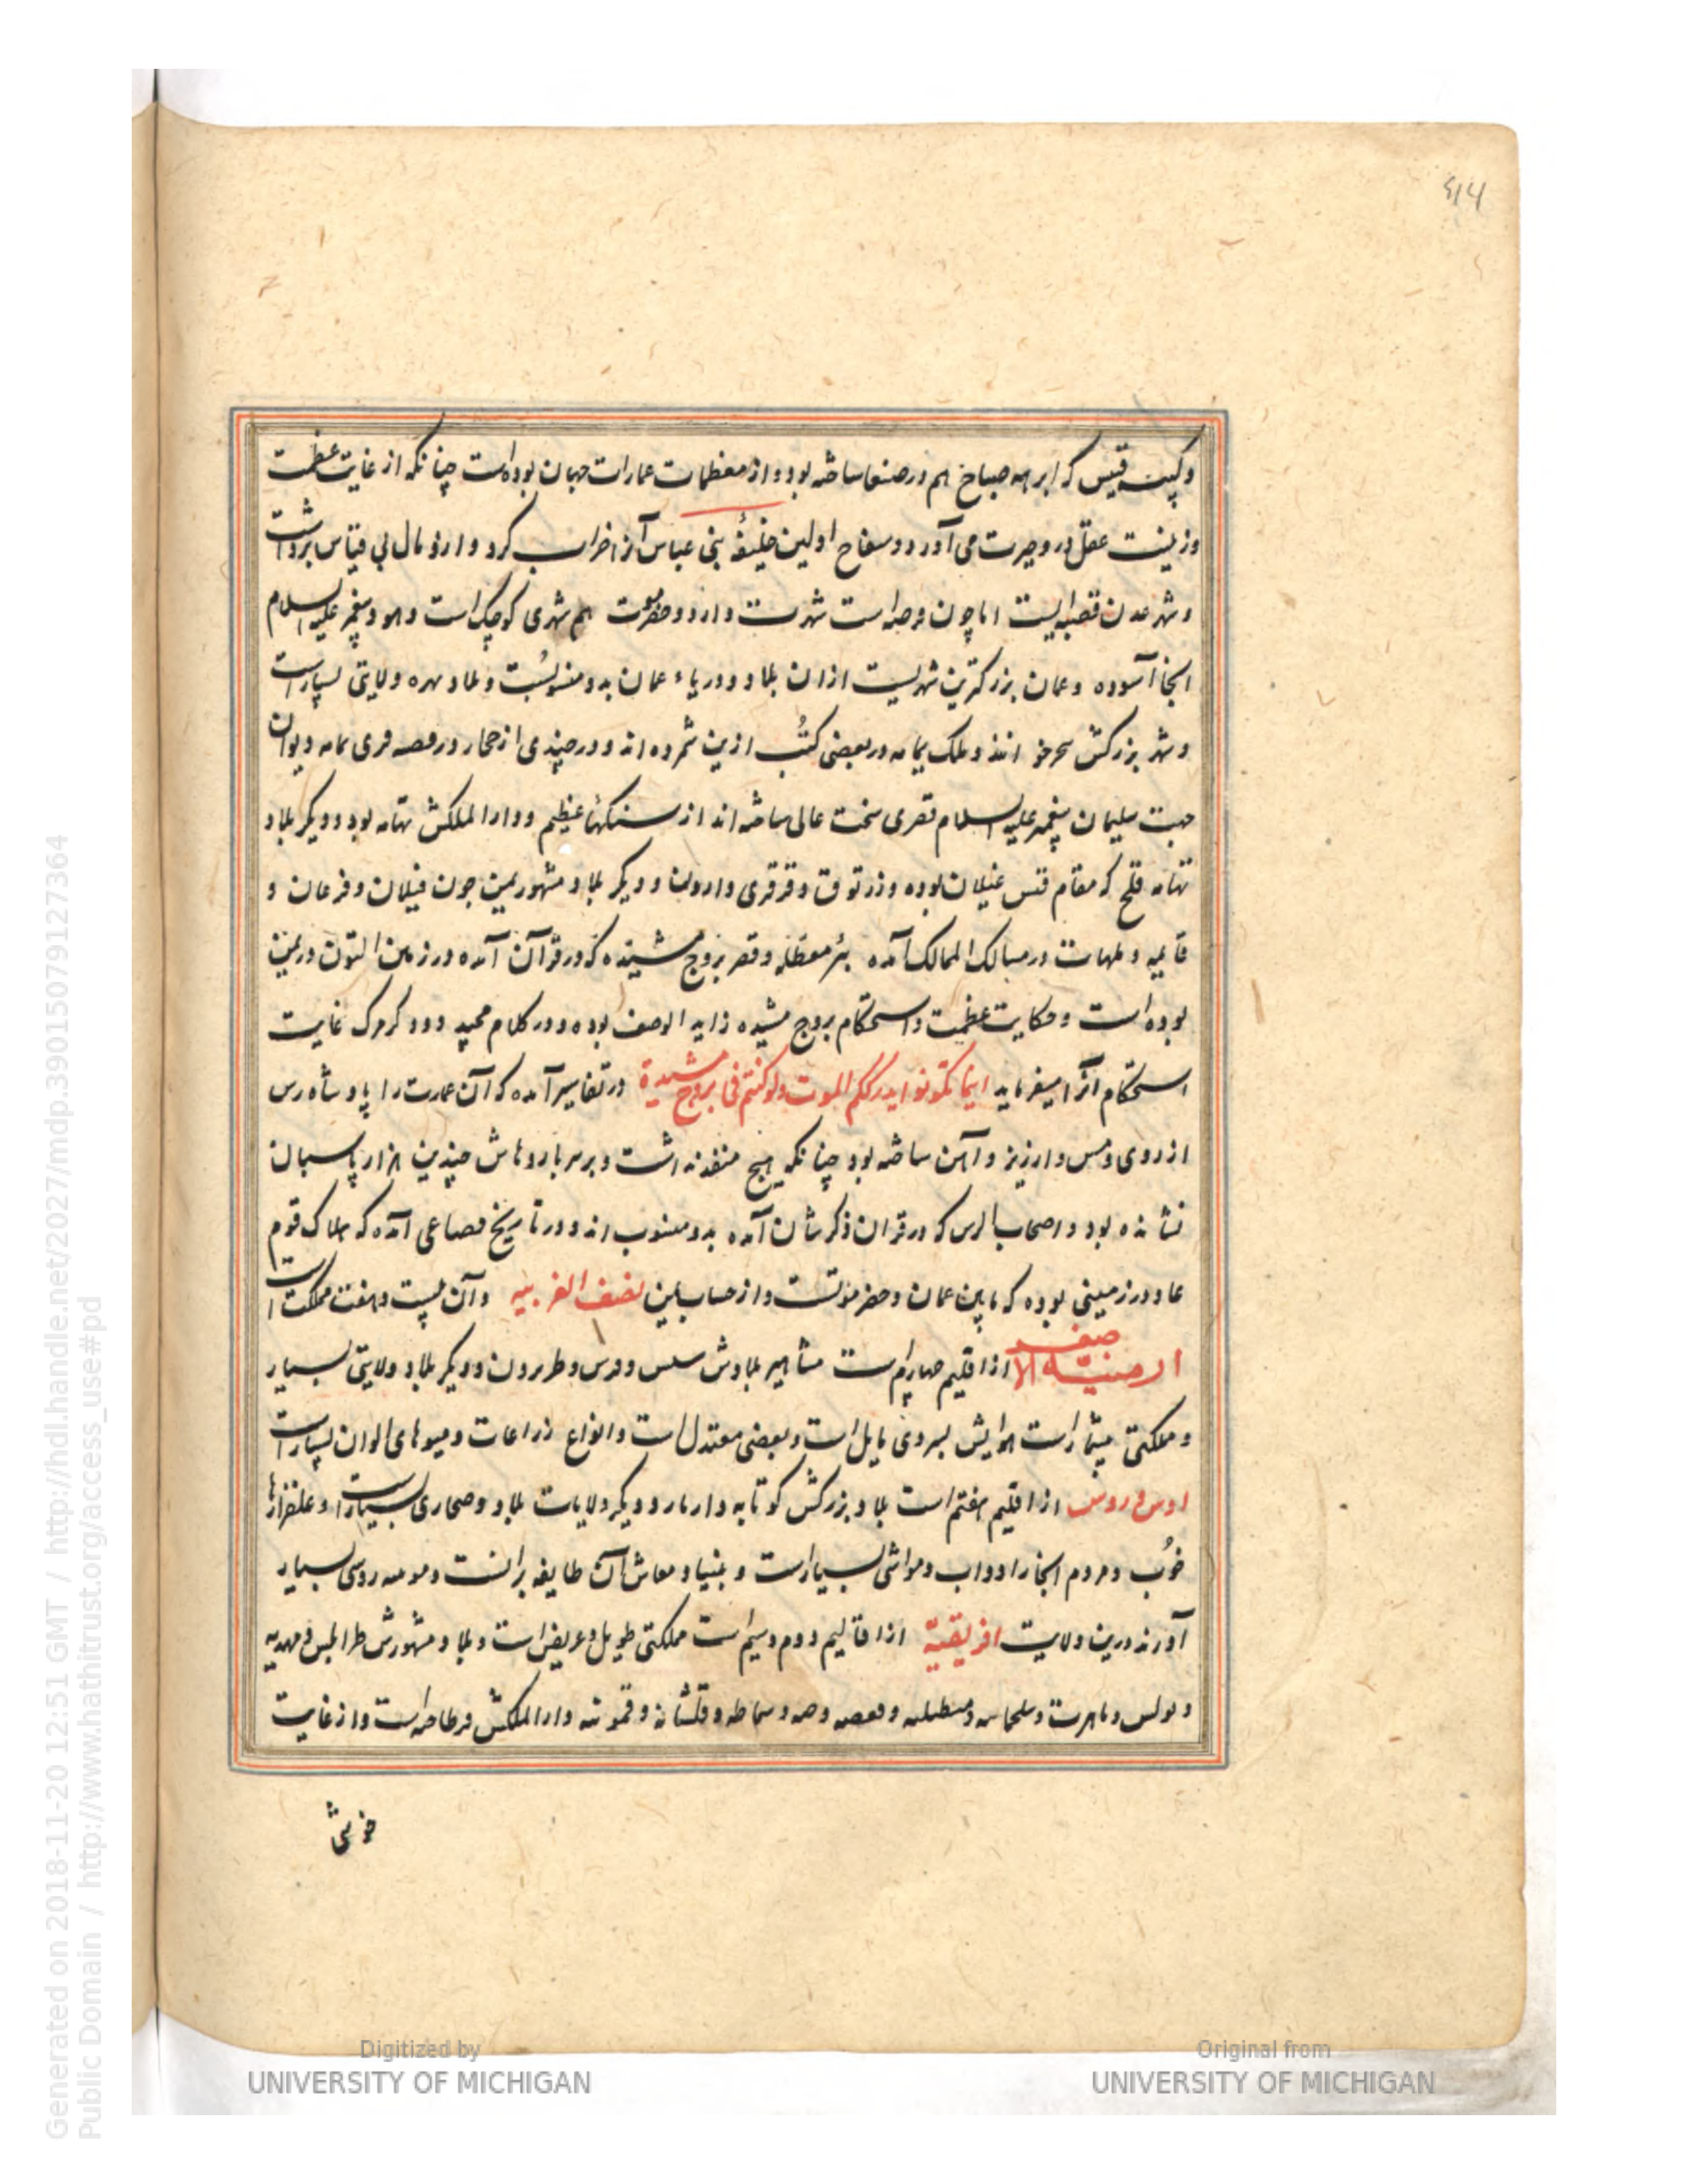 ۴۱۴
وکلیسه قیس که ابرهه صباح هم در صنعا ساخته بود و از معظمات عمارات جهان بوده است چنانکه از غایت عظمت
وزینت عقل درو حیرت می آورد و سفاح اولین خلیفهٔ بنی عباس آنرا خراب کرد و ازو مال بی قیاس برداشت
و شهر عدن قصبه ایست اما چون فرضه است شهرت دارد و حضرموت هم شهری کوچک است و هود پیغمبر علیه السلام
آنجا آسوده و عمان بزرگترین شهریست ازان بلاد و دریاء عمان بدو منسوبست و بلاد مهره ولایتی بسیارست
و شهر بزرگش شحر خوانند و ملک یمامه در بعضی کتب ازین شمرده اند و در چندی از حجاز در قصه قری یمامه دیوان
جهت سلیمان پیغمبر علیه السلام قصری سخت عالی ساخته اند از سنگهای عظیم و دارالملکش تهامه بود و دیگر بلاد
تهامه فلج که مقام قتس غیلان بوده و زرتوق و قرقری و اردون و دیگر بلاد مشهور یمن چون فیلان و فرعان و
در مسالک الممالک آمده بئر معطله و قصر بروج مشیده که در قرآن آمده در زمین التون در یمن
بوده است و حکایت عظمت و استحکام بروج مشیده زاید الوصف بوده و در کلام مجید در ذکر مرگ غایت
استحکام آنرا میفرماید اینما تکونوا یدرککم الموت ولو کنتم فی بروج مشیدة در تفاسیر آمده که آن عمارت را پادشاه رس
از روی و مس و ارزیز و آهن ساخته بود چنانکه هیچ منفذ نداشت و بر سر باروهاش چندین هزار پاسبان
نشانده بود و اصحاب الرس که در قران ذکرشان آمده بدو منسوب اند و در تاریخ قضاعی آمده که هلاک قوم
عاد در زمینی بوده که مابین عمان و حضرموتست و از حساب یمن نصف الغربیه و آن بیست و هفت مملکت است
ارمنیة الاصغر از اقلیم چهارم است مشاهیر بلادش سیس و قبرس و طرابزون و دیگر بلاد ولایتی بسیار
و مملکتی بیشمارست هوایش بسردی مایل است و بعضی معتدل است و انواع زراعات و میوهای الوان بسیارست
اوس و روس از اقلیم هفتم است بلاد بزرگش کوتابه و ارمارو و دیگر ولایات بلاد و صحاری بسیارست و علفزارها
خوب و مردم آنجا را دواب و مواشی بسیارست و بنیاد معاش آن طایفه برانست و مومینه روسی بسیار
آورند درین ولایت افریقیة از اقالیم دوم و سیم است مملکتی طویل و عریض است و بلاد مشهورش طرابلس و مهدیه
و تونس و تاهرت و سلجماسه و سطیله و قفصه و سماطه و قلشانه و قمونیه دارالملکش قرطاجنه است و از غایت
خوشی
Generated on 2018-11-20 12:51 GMT / http://hdl.handle.net/2027/mdp.39015079127364
Public Domain / http://www.hathitrust.org/access_use#pd
Digitized by
UNIVERSITY OF MICHIGAN
Original from
UNIVERSITY OF MICHIGAN